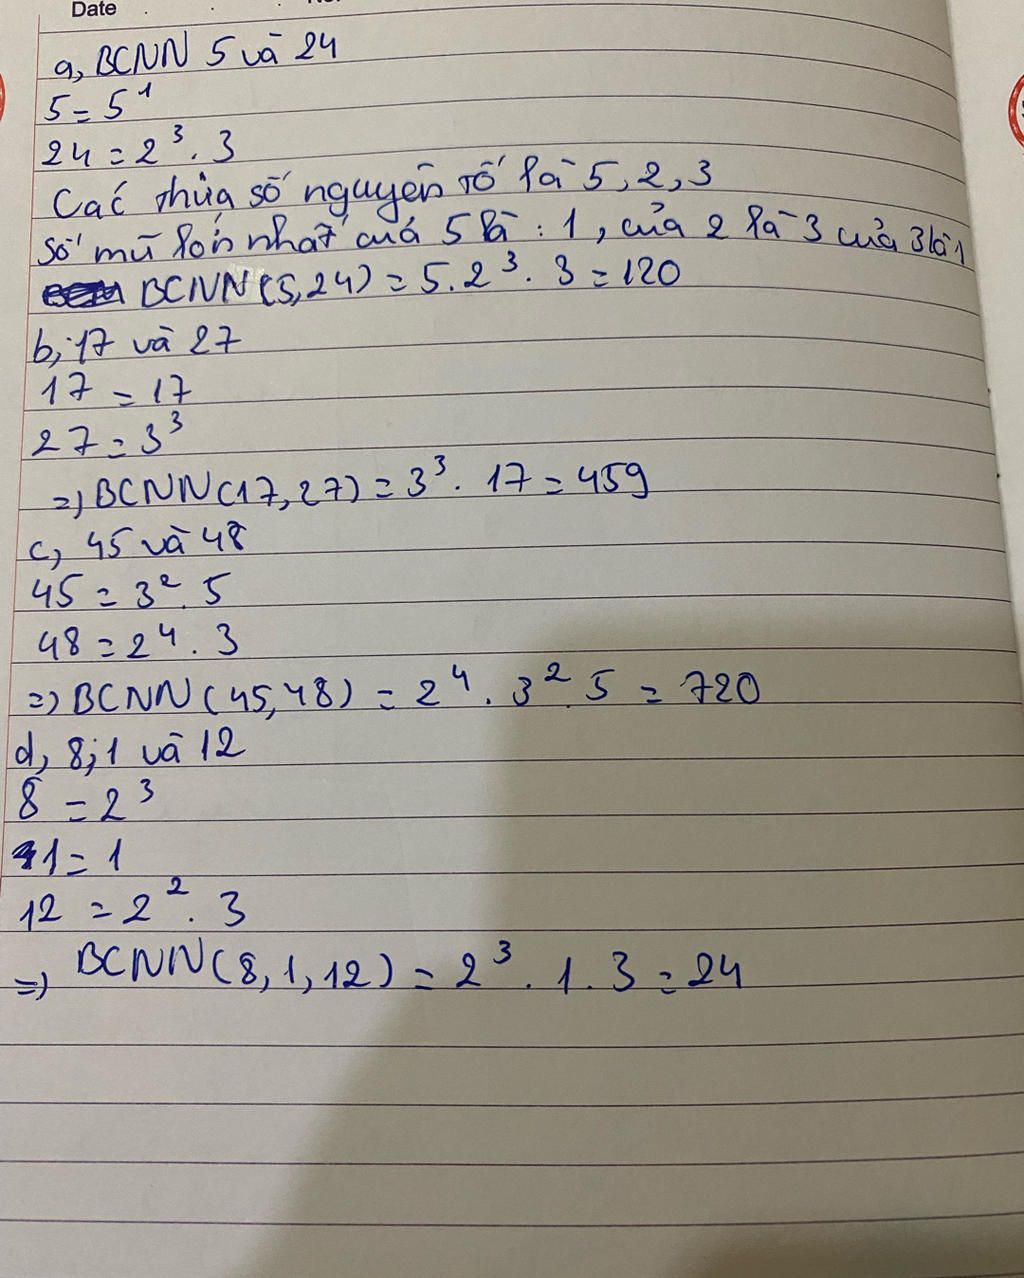 Date
a, BCNN 5 và 24
5 = 5¹
24 = 2³ . 3
Các thừa số nguyên tố là 5, 2, 3
Số mũ lớn nhất của 5 là : 1, của 2 là 3 của 3 là 1
BCNN (5, 24) = 5 . 2³ . 3 = 120
b, 17 và 27
17 = 17
27 = 3³
=) BCNN (17, 27) = 3³ . 17 = 459
c, 45 và 48
45 = 3² . 5
48 = 2⁴ . 3
=) BCNN (45, 48) = 2⁴ . 3² . 5 = 720
d, 8; 1 và 12
8 = 2³
1 = 1
12 = 2² . 3
=) BCNN (8, 1, 12) = 2³ . 1 . 3 = 24